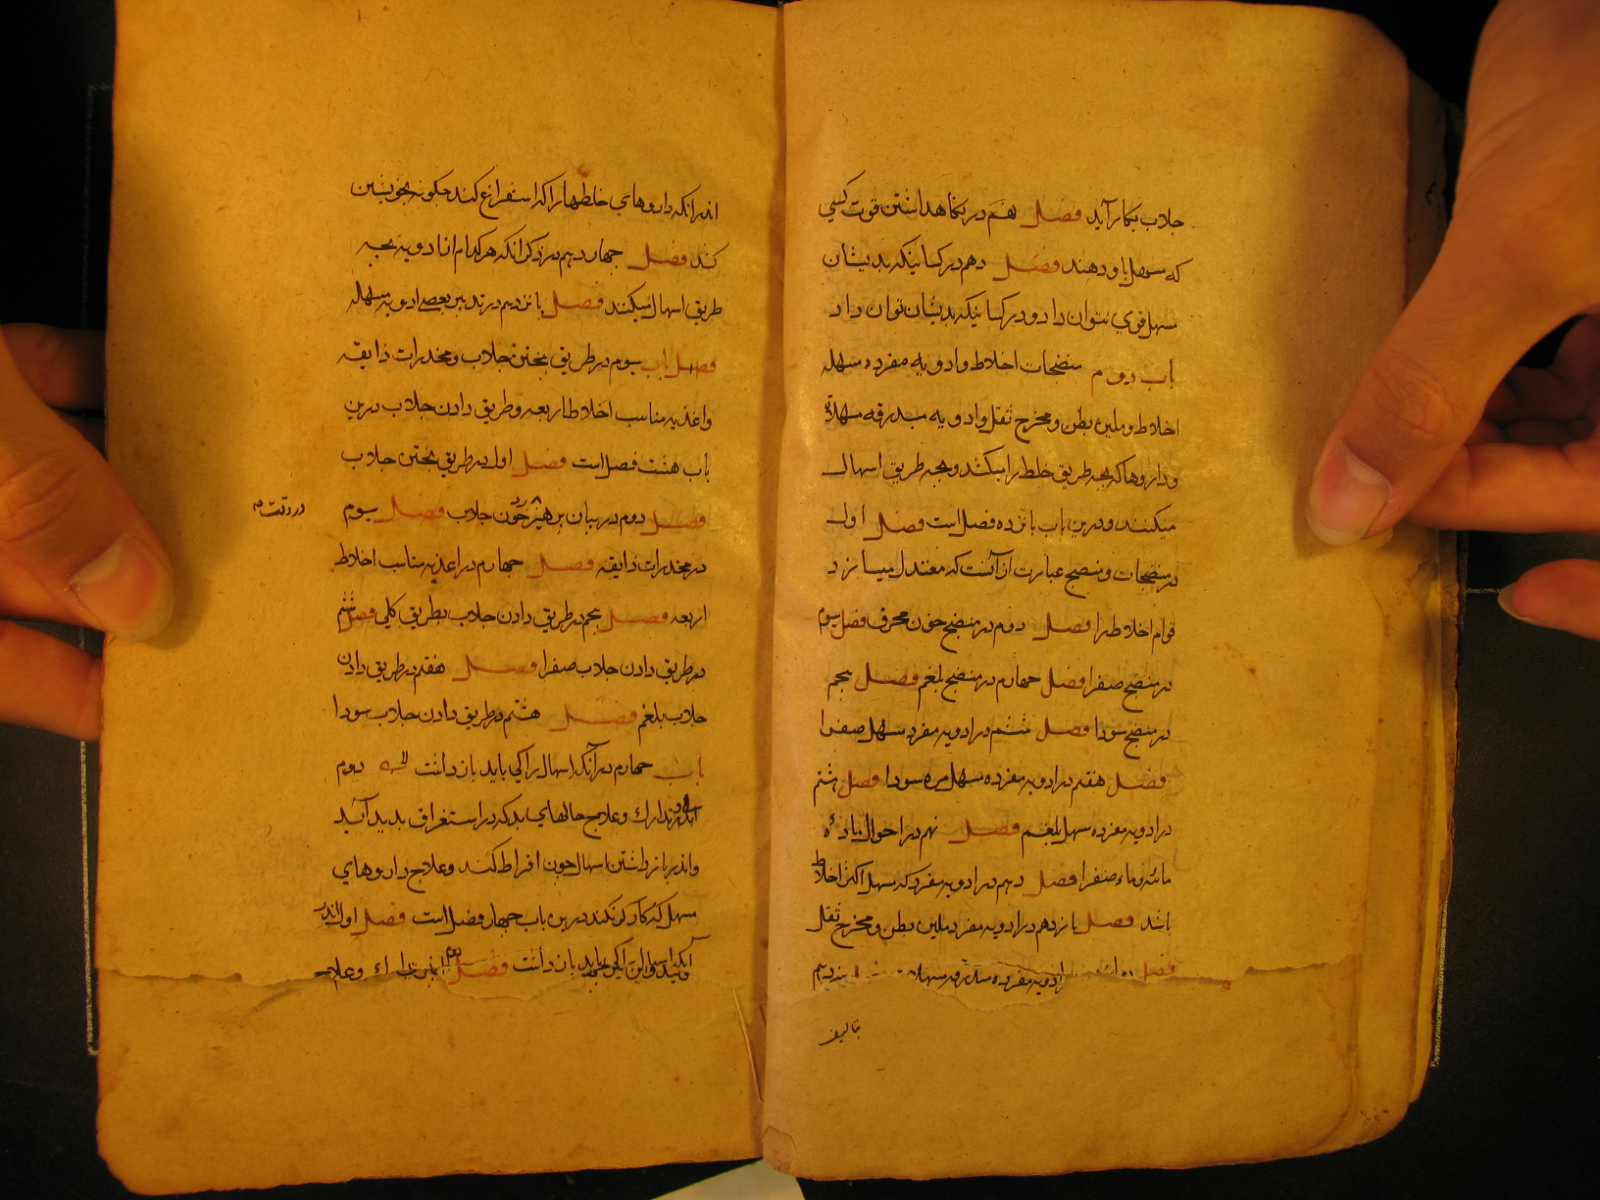 جلاب بکار آید فصل نهم در نکاهداشتن قوت کسی
که مسهل باو دهند فصل دهم در کسانیکه بدیشان
مسهل قوی نتوان داد و در کسانیکه بدیشان توان داد
باب دوم منضجات اخلاط و ادویه مفرده مسهله
اخلاط و ملین بطن و مخرج ثقل و ادویه مبدرقه مسهله
و داروها که بجه طریق خلط را میکشند و بجه طریق اسهال
میکنند و درین باب پانزده فصل است فصل اول
در منضجات و منضج عبارت از آنست که معتدل میسازد
قوام اخلاط را فصل دوم در منضج خون محرف فصل سیوم
در منضج صفرا فصل جهارم در منضج بلغم فصل پنجم
در منضج سودا فصل ششم در ادویه مفرده مسهل صفرا
فصل هفتم در ادویه مفرده مسهل مره سودا فصل هشتم
در ادویه مفرده مسهل بلغم فصل نهم در احوال
صفرا فصل دهم در ادویه مفرد که مسهل اکثر اخلاط
باشد فصل یازدهم در ادویه مفرد ملین بطن و مخرج ثقل
فصل ادویه مفرده مبدرقه مسهلات
اندر آنکه داروهای خلطها را که استفراغ کند جکونه بخویشتن
کند فصل جهاردهم در ذکر آنکه هر کدام از ادویه بجه
طریق اسهال میکنند فصل پانزدهم در تدبیر بعضی ادویه مسهله
فصل باب سیوم در طریق پختن جلاب و مخدرات ذایقه
و اغذیه مناسب اخلاط اربعه و طریق دادن جلاب درین
باب هشت فصل است فصل اول در طریق پختن جلاب
فصل دوم در بیان پرهیز خوردن جلاب فصل سیوم
در وقت
در مخدرات ذایقه فصل جهارم در اغذیه مناسب اخلاط
اربعه فصل پنجم در طریق دادن جلاب بطریق کلی فصل ششم
در طریق دادن جلاب صفرا فصل هفتم در طریق دادن
جلاب بلغم فصل هشتم در طریق دادن جلاب سودا
باب جهارم در آنکه اسهال را کی باید بازداشت دوم
تدارک و علاج حالهای بد که در استفراق بدید آید
و اندر بازداشتن اسهال جون افراط کند و علاج داروهای
مسهل که کار نکند درین باب جهار فصل است فصل اول اندر
باید بازداشت فصل دوم تدارک و علاج